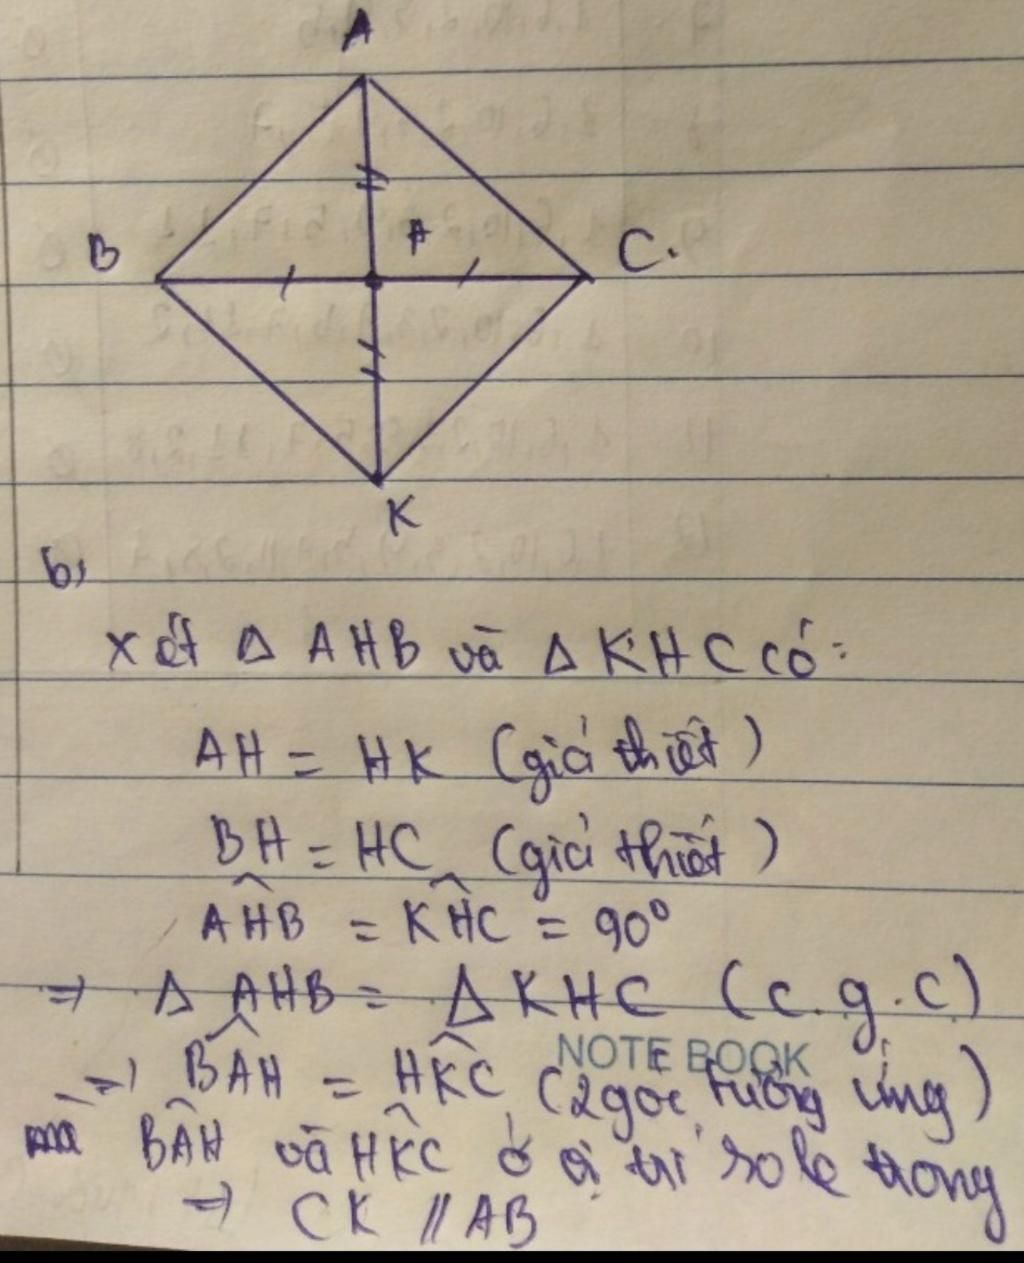 A
B
A
C.
K
b,
xét Δ AHB và Δ KHC có:
AH = HK (giả thiết)
BH = HC (giả thiết)
AHB̂ = KHĈ = 90°
⇒ Δ AHB = Δ KHC (c.g.c)
NOTE BOOK
⇒ BÂH = HK̂C (2 góc tương ứng)
mà BÂH và HK̂C ở vị trí so le trong
⇒ CK // AB